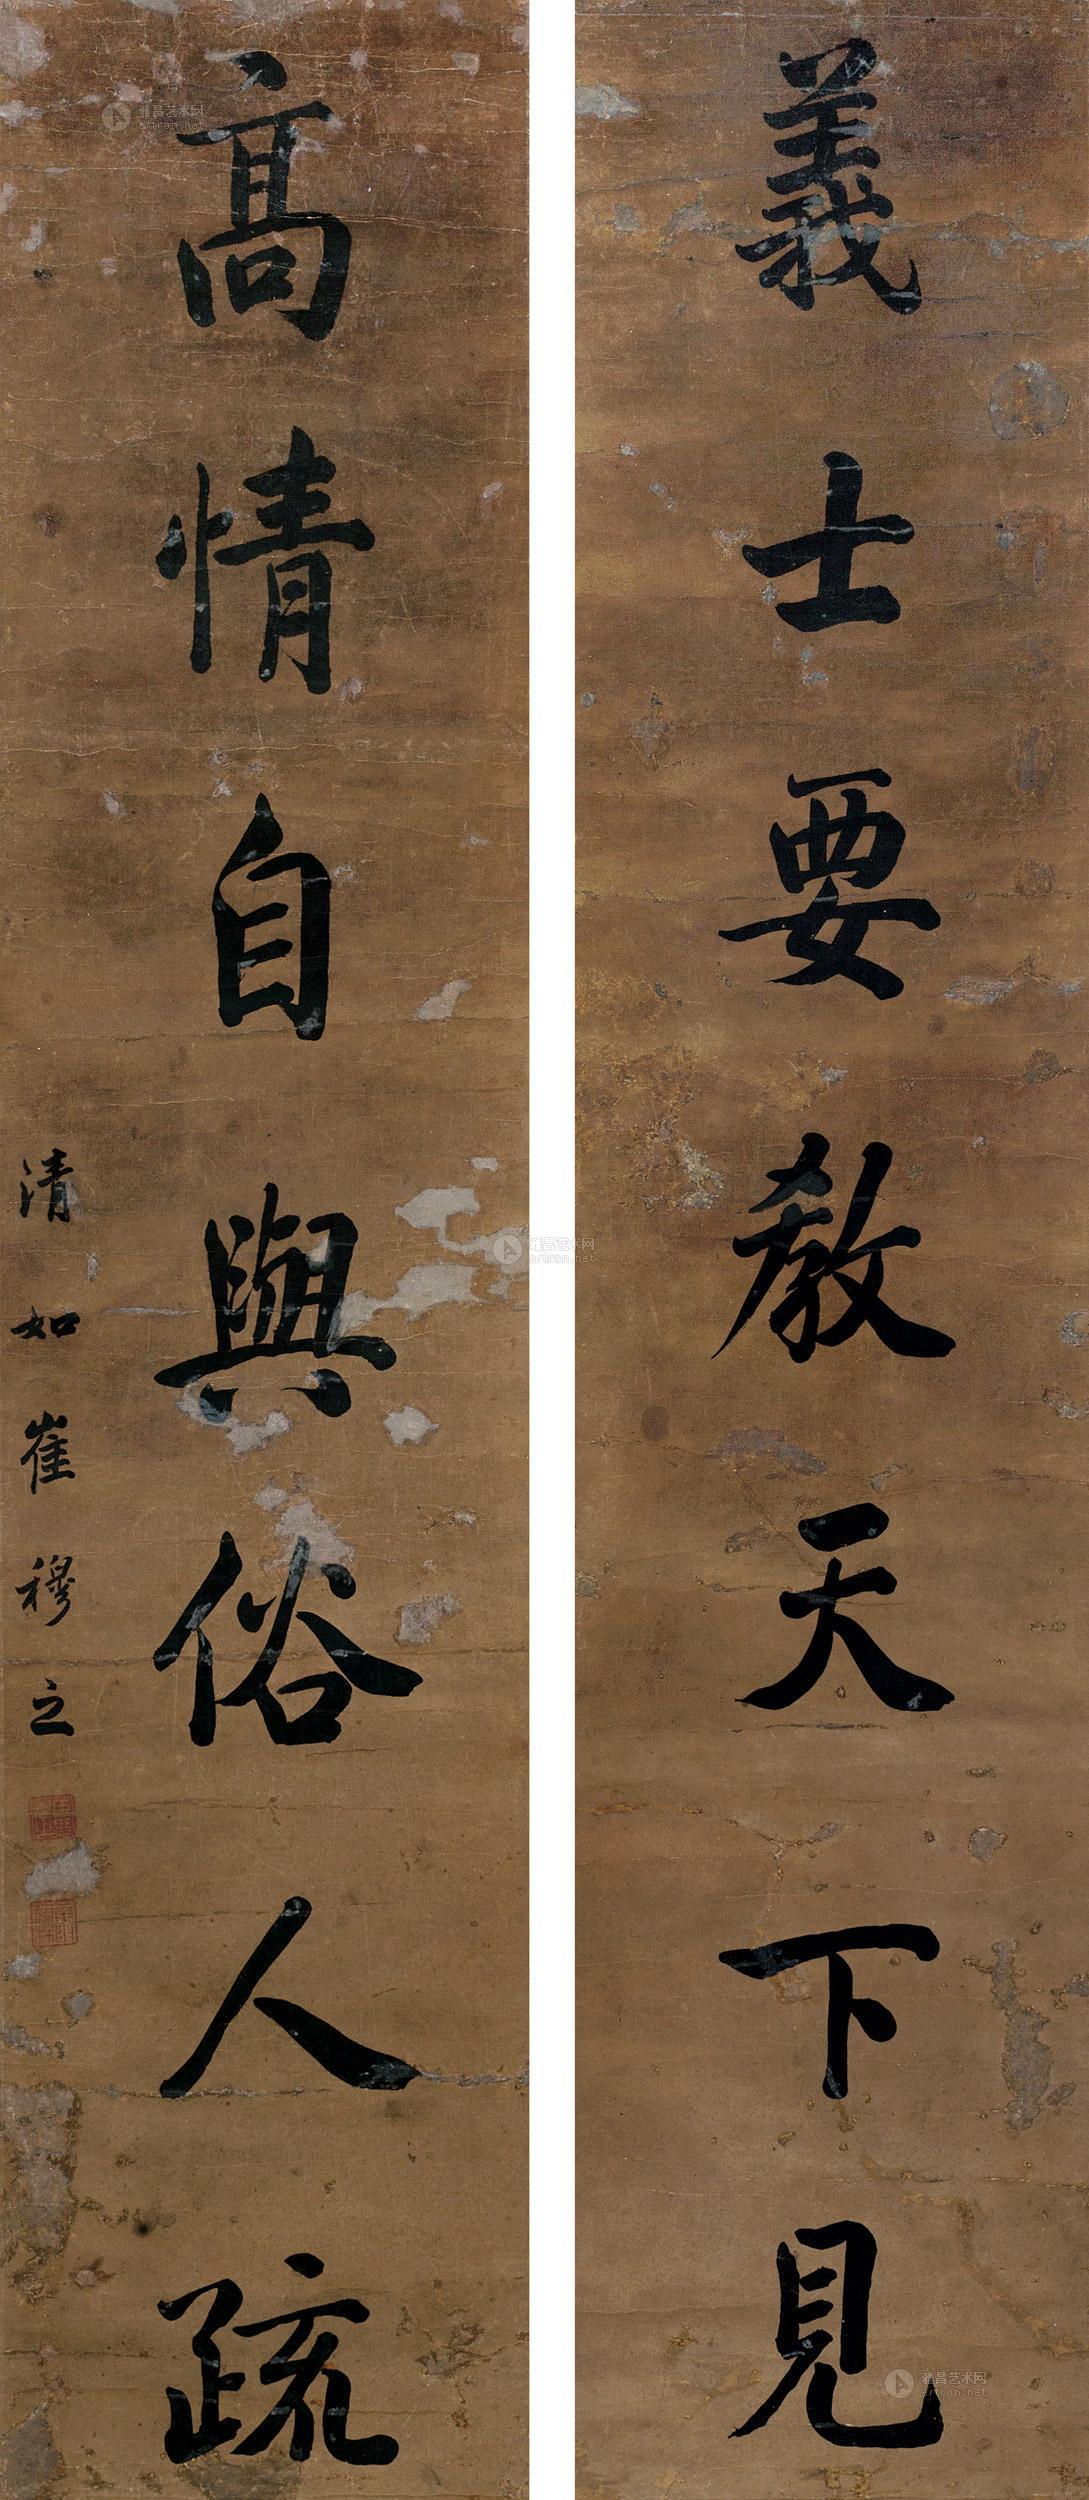 義士要教天下見
高情自與俗人疏
清如崔穆之
雅昌艺术网
artron.net
雅昌艺术网
artron.net
雅昌艺术网
artron.net